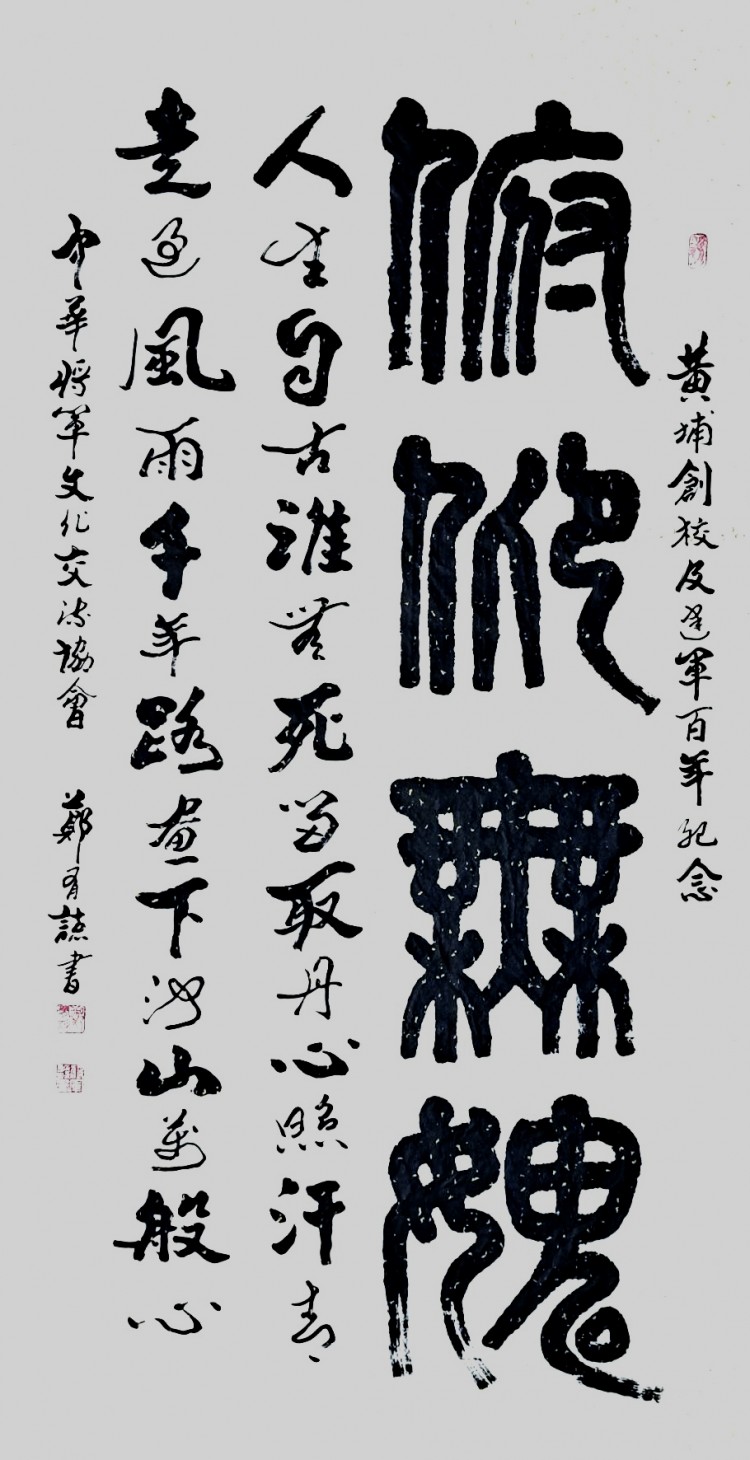 黃埔創校及建軍百年紀念
俯仰無媿
人生自古誰無死留取丹心照汗青
走過風雨千年路畫下河山萬般心
中華將軍文化交流協會 鄭有書